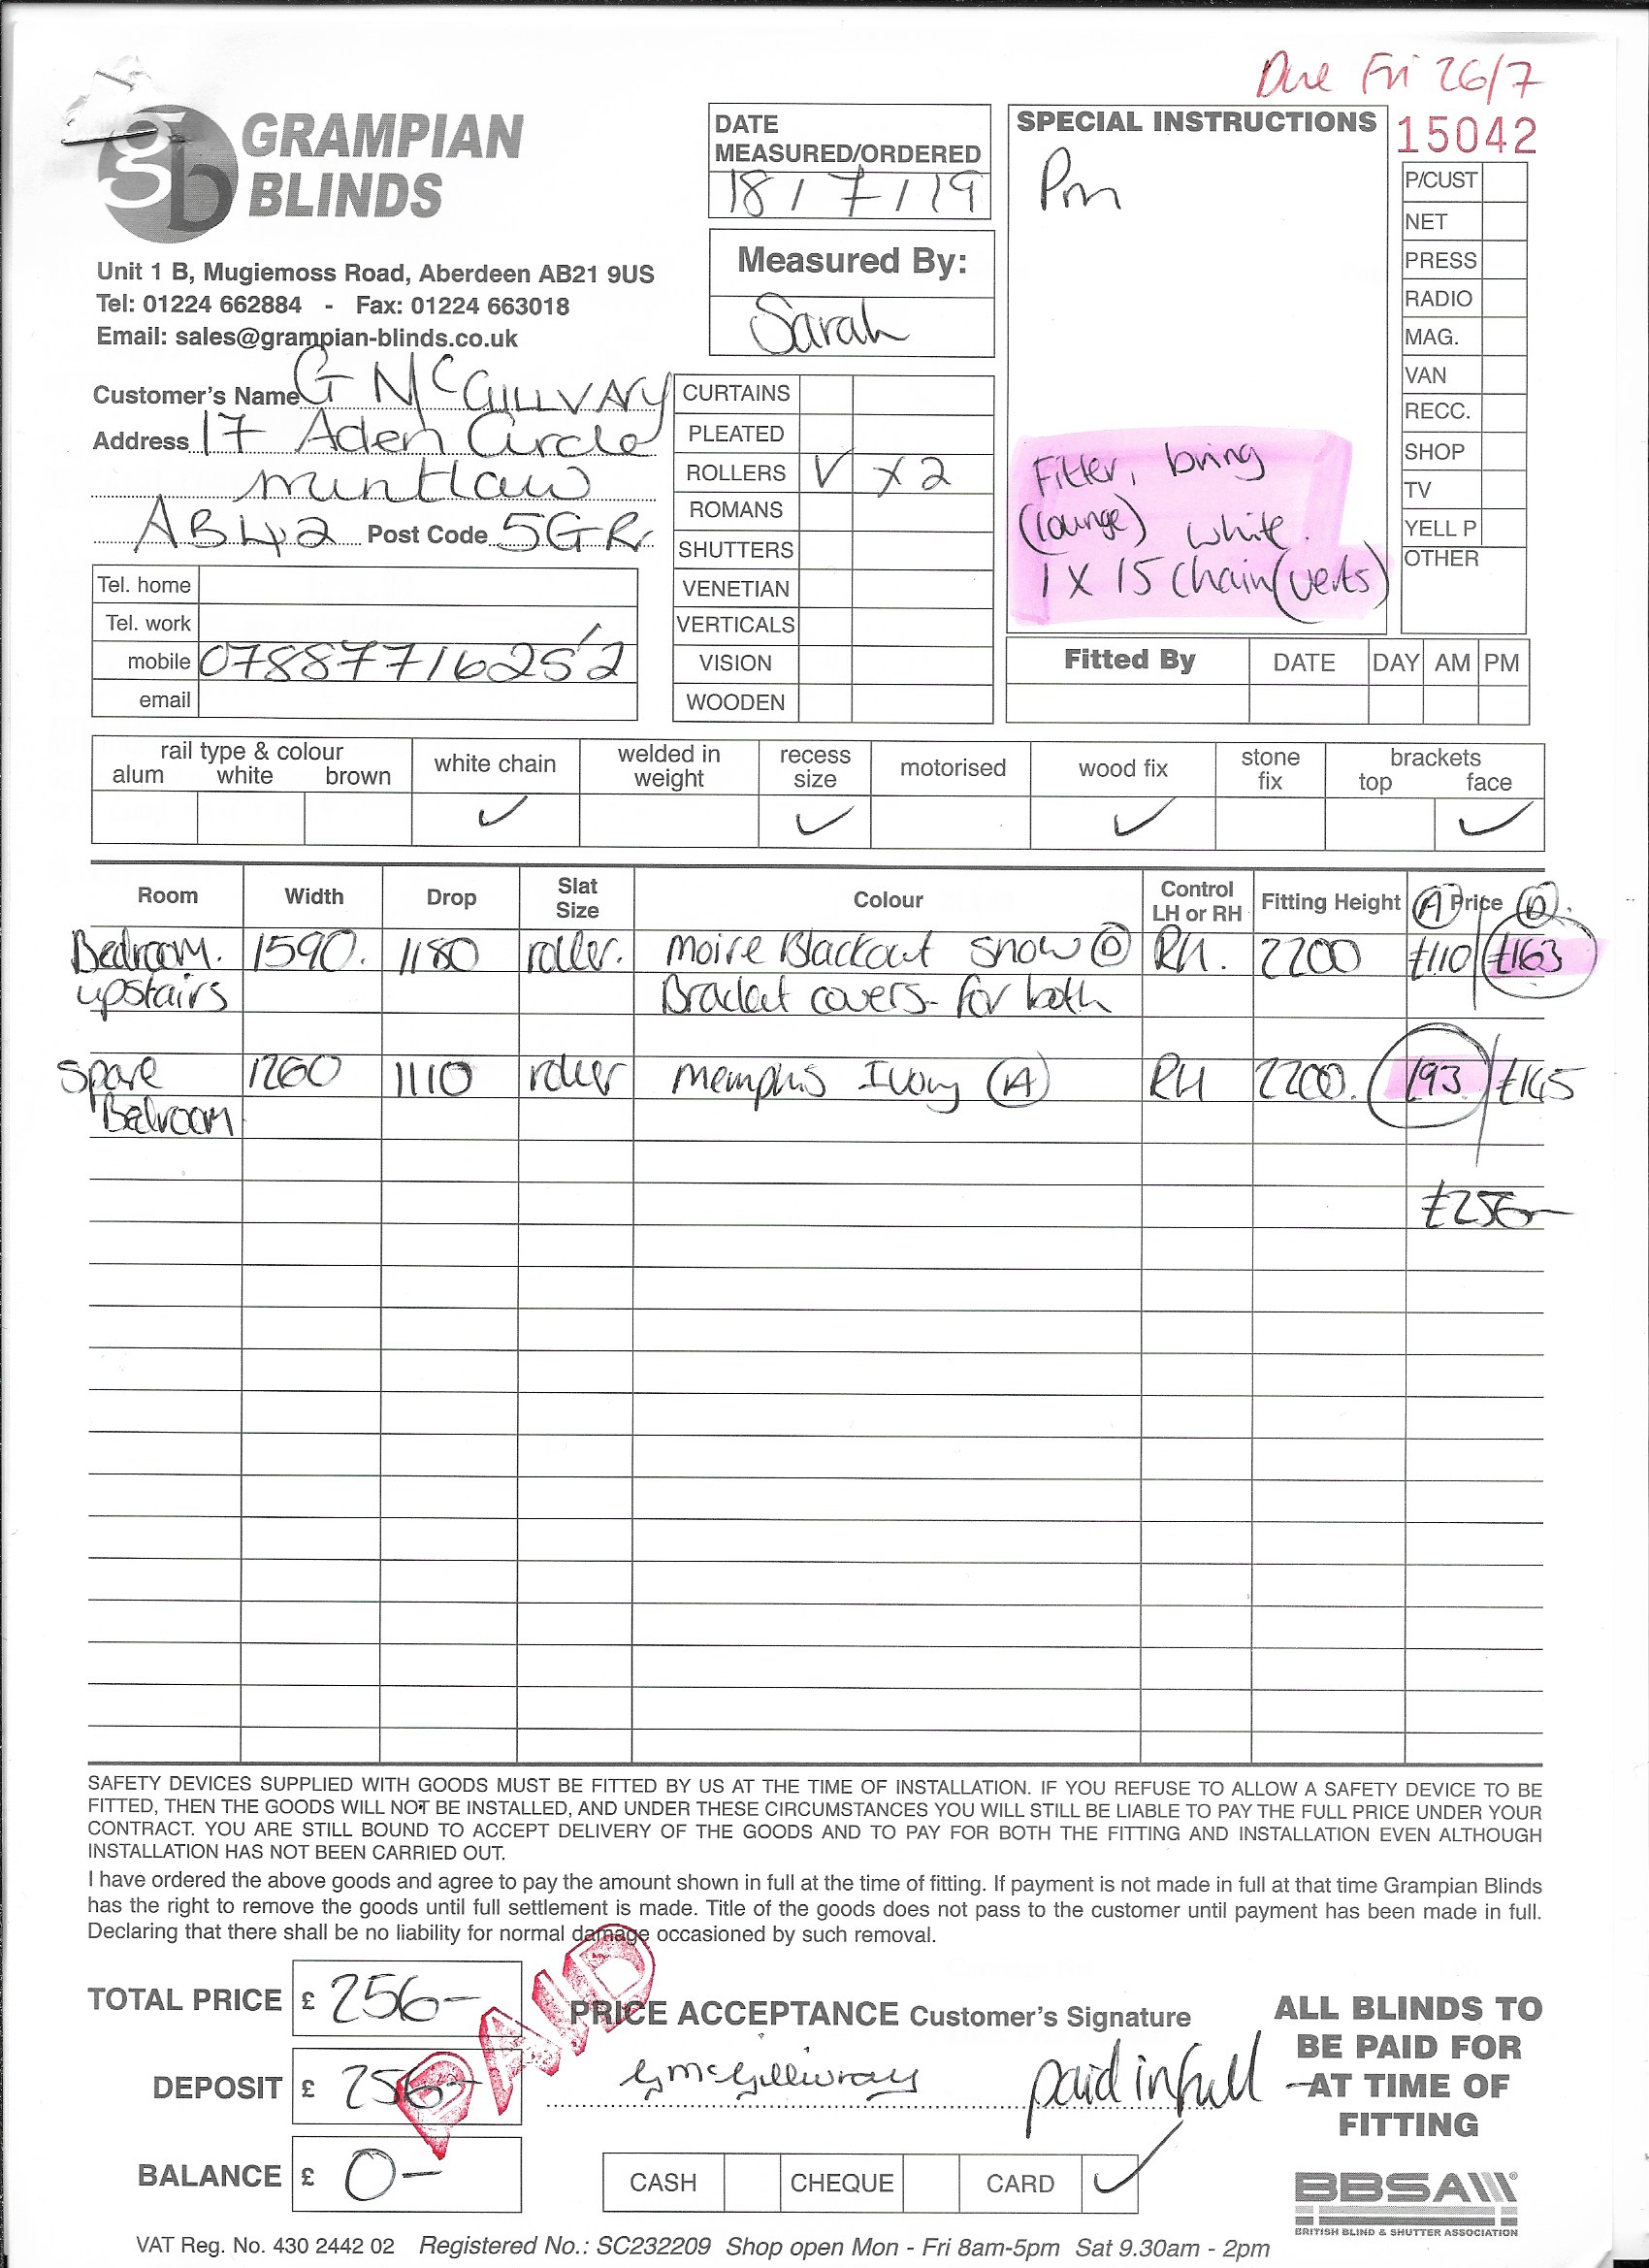 Due Fri 26/7
gb GRAMPIAN
BLINDS
Unit 1 B, Mugiemoss Road, Aberdeen AB21 9US
Tel: 01224 662884 - Fax: 01224 663018
Email: sales@grampian-blinds.co.uk
DATE
MEASURED/ORDERED
18 / 7 / 19
Measured By:
Sarah
SPECIAL INSTRUCTIONS
Pm
Fitter, bring
(lounge) white.
1 X 15 chain (verts)
15042
P/CUST
NET
PRESS
RADIO
MAG.
VAN
RECC.
SHOP
TV
YELL P
OTHER
Customer's Name G McGILLVARY
Address 17 Aden Circle
mintlaw
AB42 Post Code 5GR
Tel. home
Tel. work
mobile 07887716252
email
CURTAINS
PLEATED
ROLLERS ✓ x2
ROMANS
SHUTTERS
VENETIAN
VERTICALS
VISION
WOODEN
Fitted By DATE DAY AM PM
rail type & colour white chain welded in weight recess size motorised wood fix stone fix brackets
alum white brown top face
✓ ✓ ✓ ✓
Room Width Drop Slat Size Colour Control LH or RH Fitting Height (A) Price (D).
Bedroom. 1590. 1180 roller. moire Blackout snow (D) RH. 2200 £110 / £163
upstairs Bracket covers- for both
Spare 1260 1110 roller memphis Ivory (A) RH 2200. £93 / £145
Bedroom
£256-
SAFETY DEVICES SUPPLIED WITH GOODS MUST BE FITTED BY US AT THE TIME OF INSTALLATION. IF YOU REFUSE TO ALLOW A SAFETY DEVICE TO BE
FITTED, THEN THE GOODS WILL NOT BE INSTALLED, AND UNDER THESE CIRCUMSTANCES YOU WILL STILL BE LIABLE TO PAY THE FULL PRICE UNDER YOUR
CONTRACT. YOU ARE STILL BOUND TO ACCEPT DELIVERY OF THE GOODS AND TO PAY FOR BOTH THE FITTING AND INSTALLATION EVEN ALTHOUGH
INSTALLATION HAS NOT BEEN CARRIED OUT.
I have ordered the above goods and agree to pay the amount shown in full at the time of fitting. If payment is not made in full at that time Grampian Blinds
has the right to remove the goods until full settlement is made. Title of the goods does not pass to the customer until payment has been made in full.
Declaring that there shall be no liability for normal damage occasioned by such removal.
TOTAL PRICE £ 256-
DEPOSIT £ 256-
BALANCE £ 0-
PAID
PRICE ACCEPTANCE Customer's Signature
G McGillivray paid in full
CASH CHEQUE CARD ✓
ALL BLINDS TO
BE PAID FOR
AT TIME OF
FITTING
BBSA
BRITISH BLIND & SHUTTER ASSOCIATION
VAT Reg. No. 430 2442 02 Registered No.: SC232209 Shop open Mon - Fri 8am-5pm Sat 9.30am - 2pm